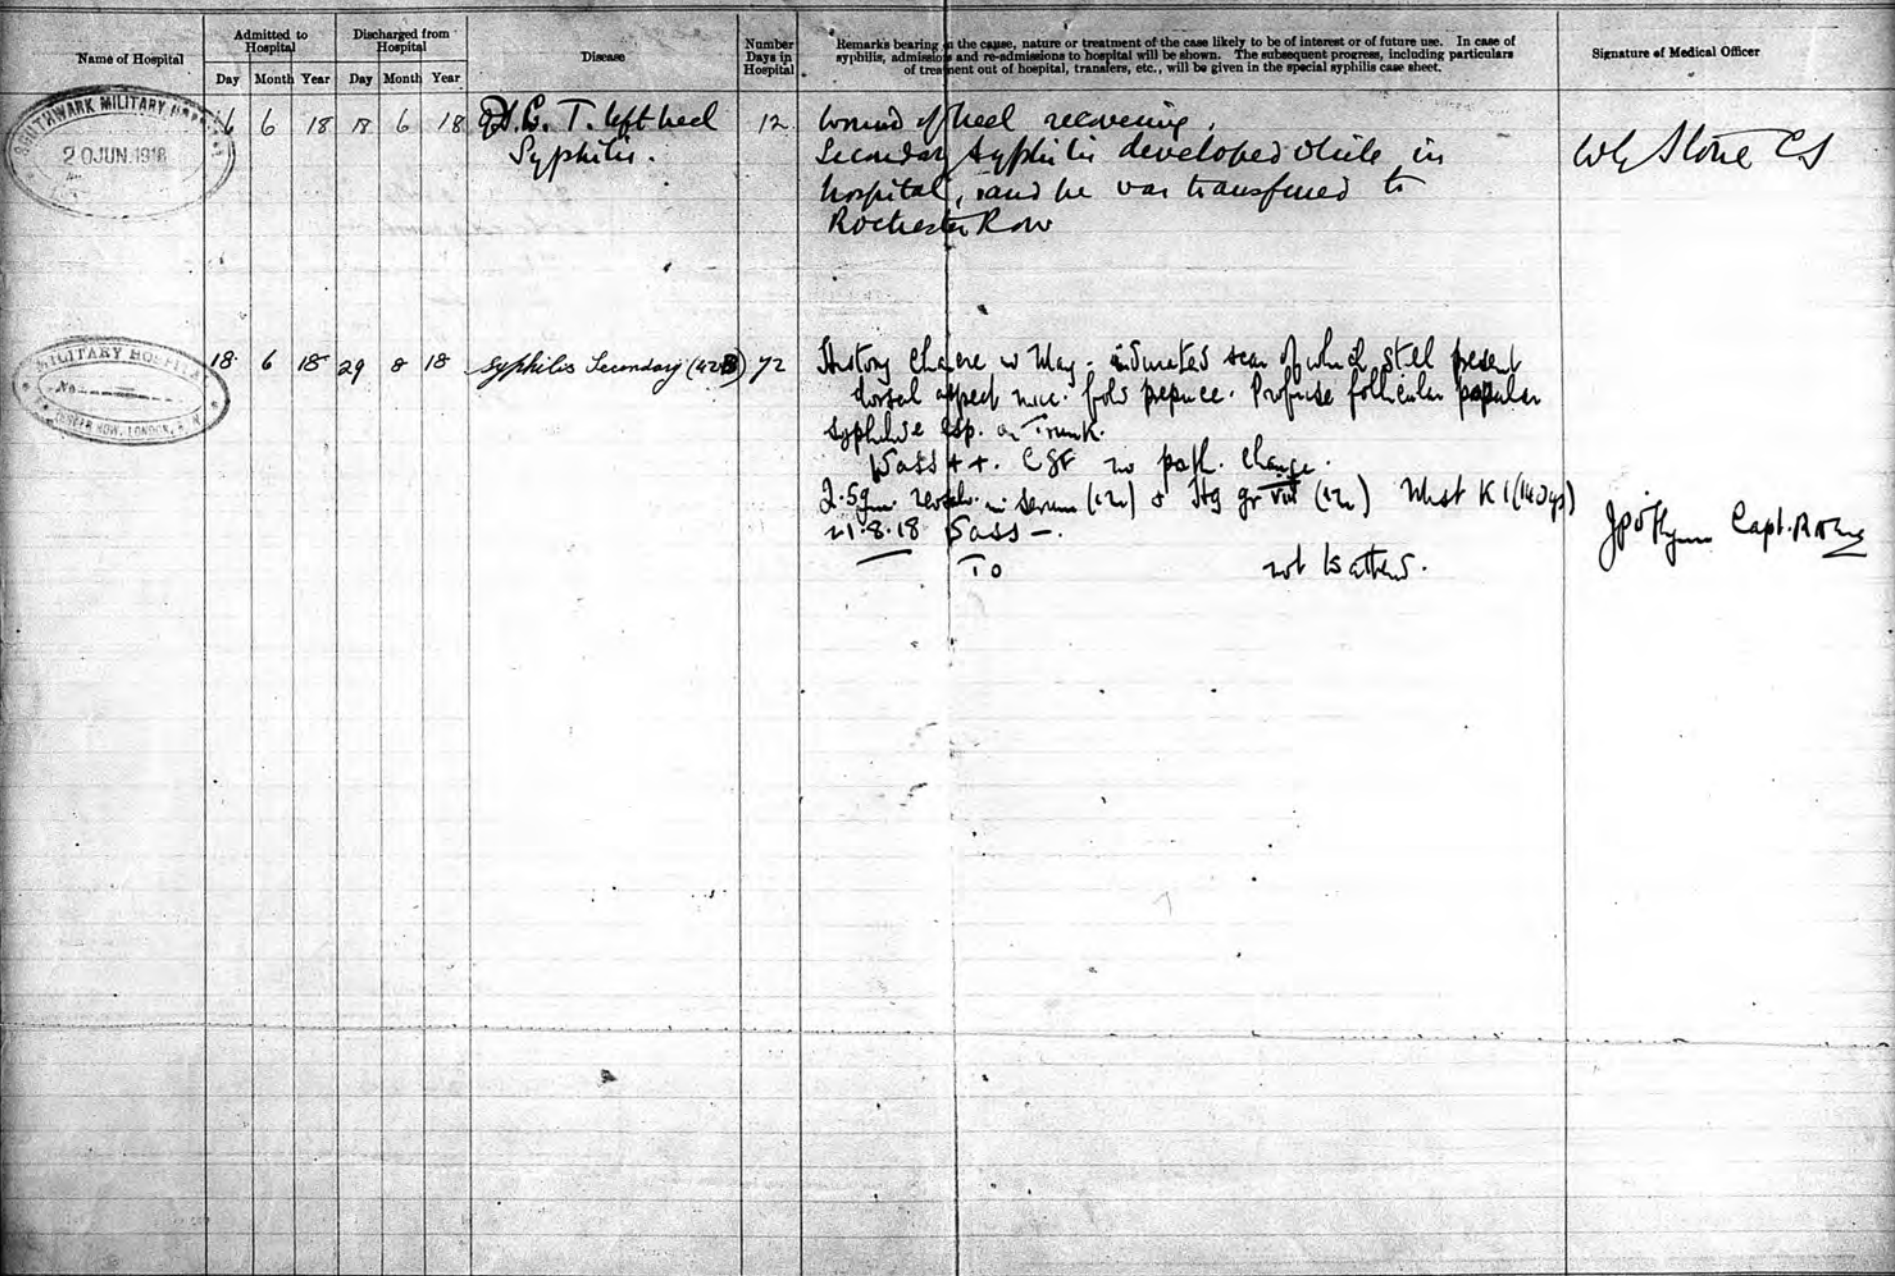 Name of Hospital
Admitted to Hospital
Discharged from Hospital
Day Month Year Day Month Year
Disease
Number Days in Hospital
Remarks bearing on the cause, nature or treatment of the case likely to be of interest or of future use. In case of
syphilis, admissions and re-admissions to hospital will be shown. The subsequent progress, including particulars
of treatment out of hospital, transfers, etc., will be given in the special syphilis case sheet.
Signature of Medical Officer
SOUTHWARK MILITARY
20 JUN. 1918
6 6 18 18 6 18 T. left heel 12 Wound of heel recovering.
Syphilis. Secondary Syphilis developed while in Stone CS
hospital, and he was transferred to
Rochester Row
MILITARY HOSPITAL
No
ROW, LONDON, S.W.
18 6 18 29 8 18 Syphilis Secondary (42B) 72 History Chancre in May - indurated scar of which still present
dorsal aspect muc. fold prepuce. Profuse follicular papular
syphilide esp. on Trunk.
Wass ++. CSF no path. change.
2.5 gm. in serum Hg gr viii KI (14 dys)
21.8.18 Wass -.
To not
Capt. RAMC